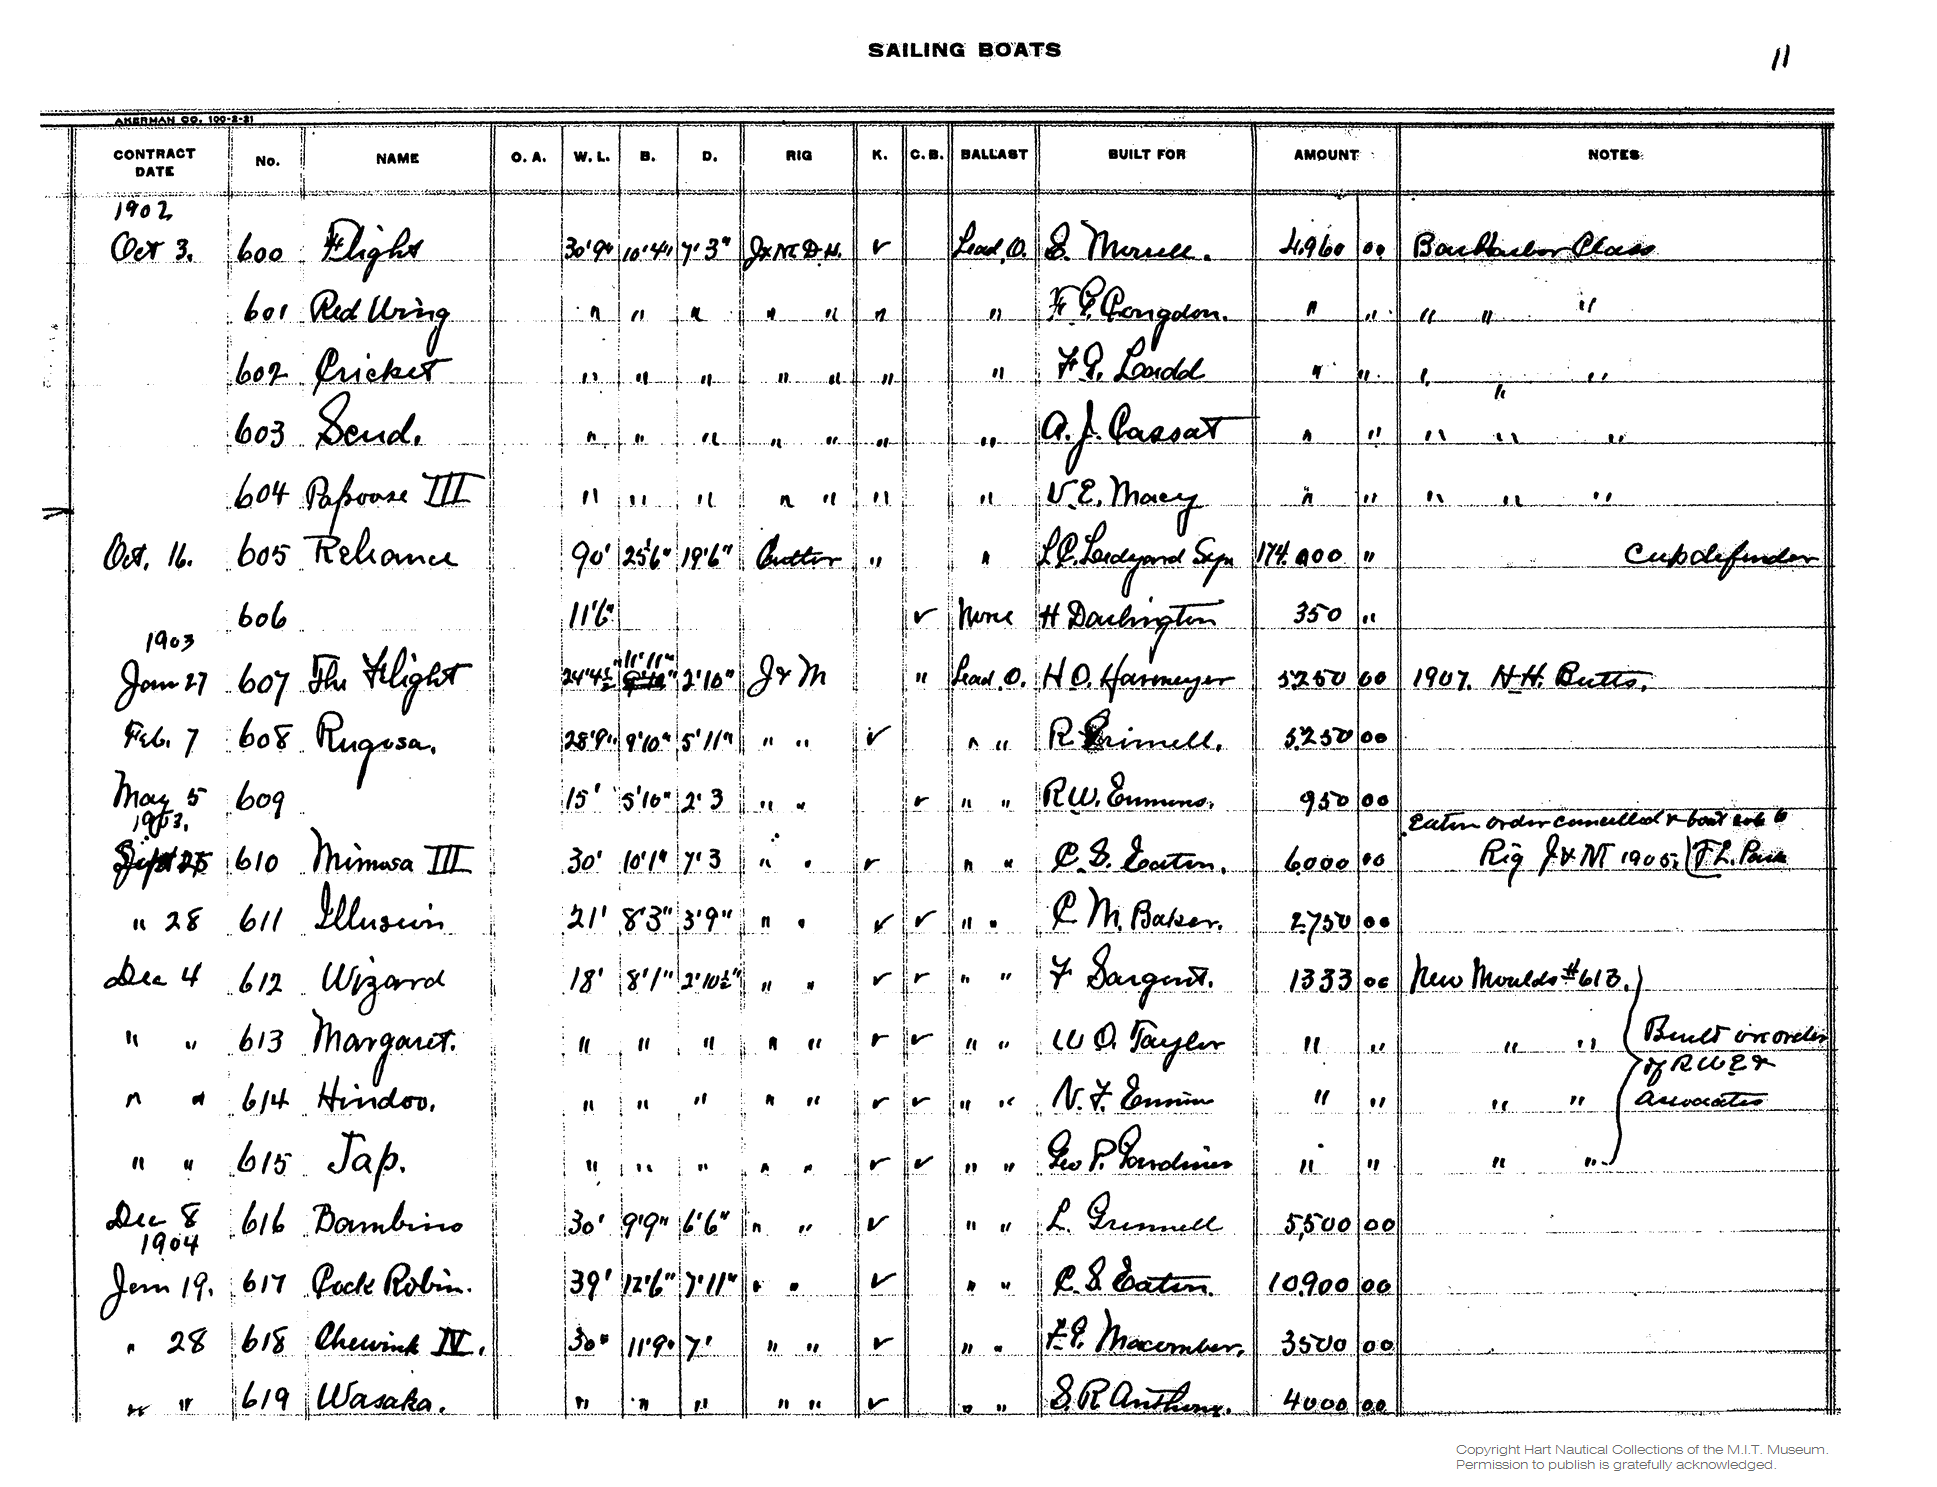 SAILING BOATS 11
AKERMAN CO. 100-2-21
CONTRACT DATE No. NAME O. A. W. L. B. D. RIG K. C. B. BALLAST BUILT FOR AMOUNT NOTES
1902
Oct 3. 600 Flight 30'9" 10'4" 7'3" J & M D. H. ✓ Lead O. S. Morrell. 4,960 00 Bar Harbor Class
601 Red Wing " " " " " " " F. G. Congdon. " " " " "
602 Cricket " " " " " " " F. G. Ladd " " " " "
603 Scud. " " " " " " " A. J. Cassat " " " " "
604 Papoose III " " " " " " " V. E. Macy " " " " "
Oct. 16. 605 Reliance 90' 25'6" 19'6" Cutter " " L. C. Ledyard Syn 174.000 " Cup defender
606 11'6" ✓ None H Darlington 350 "
1903
Jan 27 607 The Flight 24'4½" 11'11" 2'10" J & M " Lead O. H O. Havmeyer 5250 00 1907. H. H. Butts.
Feb. 7 608 Rugosa. 28'9" 9'10" 5'11" " " ✓ " " R. Grinnell. 5250 00
May 5 609 15' 5'10" 2'3 " " ✓ " " R. W. Emmons. 950 00
1903. Eaton order cancelled & boat sold to
Sept 25 610 Mimosa III 30' 10'1" 7'3 " " ✓ " " C. S. Eaton. 6000 00 Rig J & M 1905. F. L. Park
" 28 611 Illusion 21' 8'3" 3'9" " " ✓ ✓ " " C M. Baker. 2750 00
Dec 4 612 Wizard 18' 8'1" 2'10½" " " ✓ ✓ " " F Sargent. 1333 00 New Moulds #613.
" " 613 Margaret. " " " " " ✓ ✓ " " W O. Taylor " " " " Built on order
of R W E &
" " 614 Hindoo. " " " " " ✓ ✓ " " N. F. Emmons " " " " associates
" " 615 Jap. " " " " " ✓ ✓ " " Geo P. Gardiner " " " "
Dec 8 616 Bambino 30' 9'9" 6'6" " " ✓ " " L. Grinnell 5,500 00
1904
Jan 19. 617 Cock Robin. 39' 12'6" 7'11" " " ✓ " " C. S. Eaton. 10,900 00
" 28 618 Chewink IV. 30" 11'9" 7' " " ✓ " " F. G. Macomber. 3500 00
" " 619 Wasaka. " " " " " ✓ " " S. R Anthony. 4000 00
Copyright Hart Nautical Collections of the M.I.T. Museum.
Permission to publish is gratefully acknowledged.